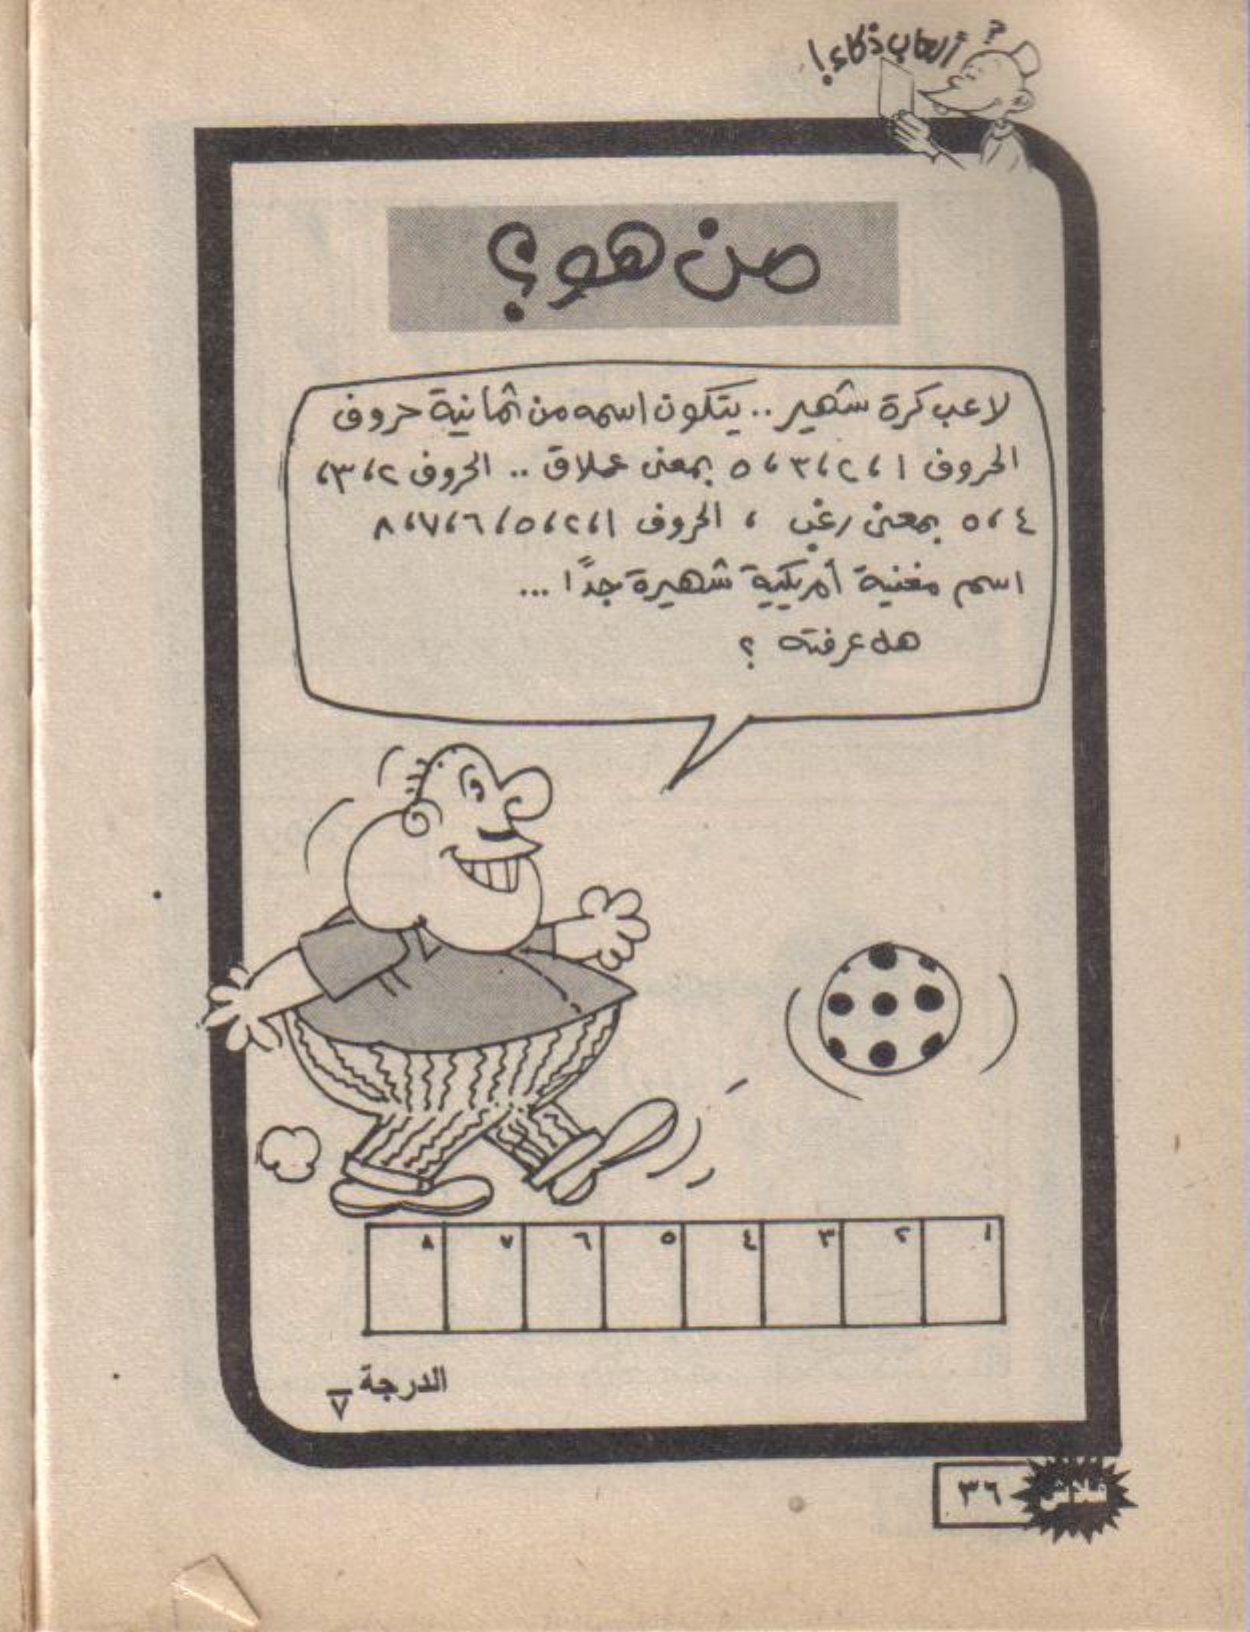 ألعاب ذكاء!
من هو؟
لاعب كرة شهير .. يتكون اسمه من ثمانية حروف
الحروف ١، ٢، ٣، ٥ بمعنى عملاق .. الحروف ٢، ٣،
٤، ٥ بمعنى رغب ، الحروف ١، ٢، ٥، ٦، ٧، ٨
اسم مغنية أمريكية شهيرة جدًا ...
هل عرفته ؟
١ ٢ ٣ ٤ ٥ ٦ ٧ ٨
الدرجة ٧
فلاش ٣٦